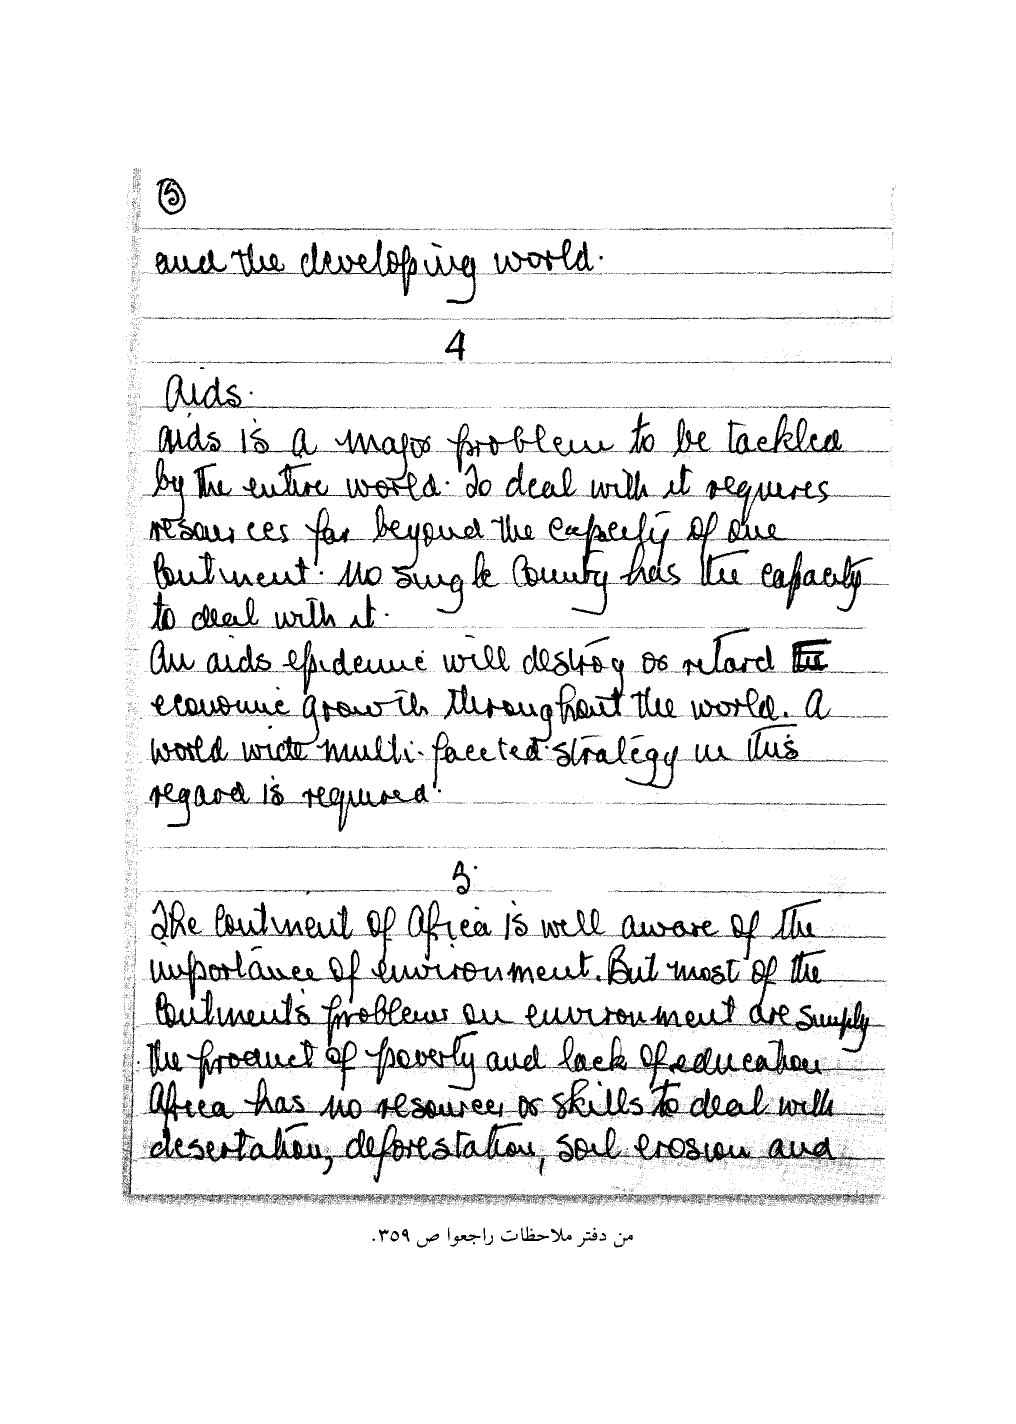 5
and the developing world.
4
Aids.
Aids is a major problem to be tackled
by the entire world. To deal with it requires
resources far beyond the capacity of one
Continent. No single Country has the capacity
to deal with it.
An aids epidemic will destroy or retard the
economic growth throughout the world. A
world wide multi-faceted strategy in this
regard is required.
5.
The Continent of Africa is well aware of the
importance of environment. But most of the
Continent's problems on environment are simply
the product of poverty and lack of education
Africa has no resources or skills to deal with
desertation, deforestation, soil erosion and
من دفتر ملاحظات راجعوا ص ٣٥٩.